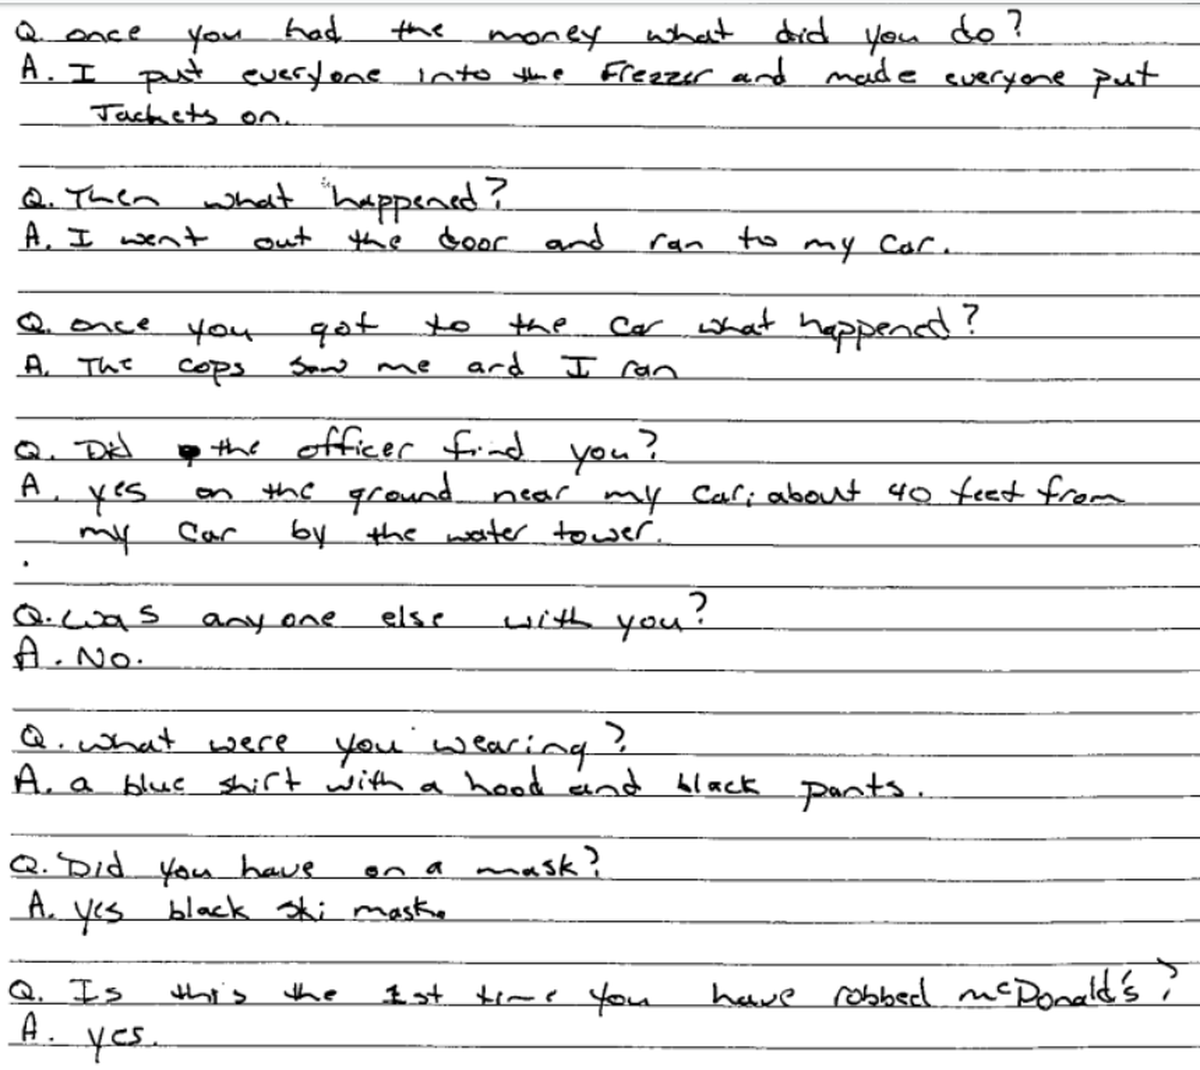 Q. once you had the money what did you do?
A. I put everyone into the Frezzer and made everyone put
Jackets on.
Q. Then what happened?
A. I went out the door and ran to my car.
Q. once you got to the car what happened?
A. The cops saw me and I ran
Q. Did the officer find you?
A. yes on the ground near my car; about 40 feet from
my car by the water tower.
Q. was anyone else with you?
A. No.
Q. what were you wearing?
A. a blue shirt with a hood and black pants.
Q. Did you have on a mask?
A. yes black ski mask.
Q. Is this the 1st time you have robbed mcDonald's?
A. yes.